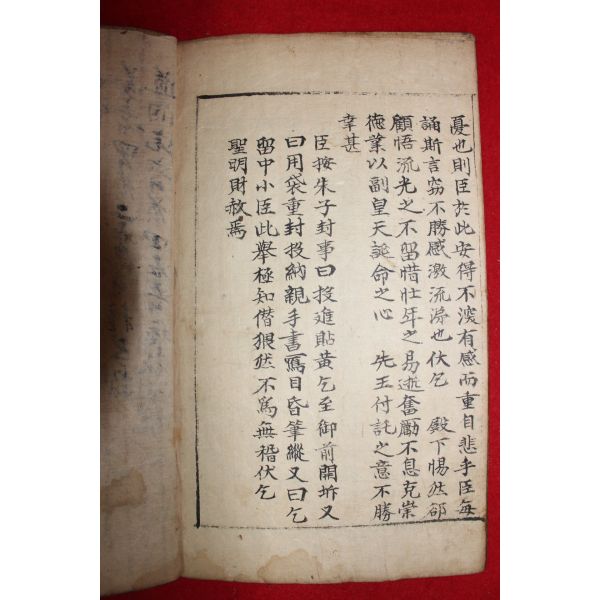 憂也則臣於此安得不深有感而重自悲乎臣每
誦斯言窃不勝感激流涕也伏乞 殿下惕然郤
顧悟流光之不留惜壮年之易逝奮勵不息克崇
徳業以副皇天誕命之心 先王付託之意不勝
幸甚
臣按朱子封事曰投進貼黃乞至御前開坼又
曰用袋重封投納親手書寫目昏筆縱又曰乞
留中小臣此舉極知僭猥然不爲無稽伏乞
聖明財赦焉